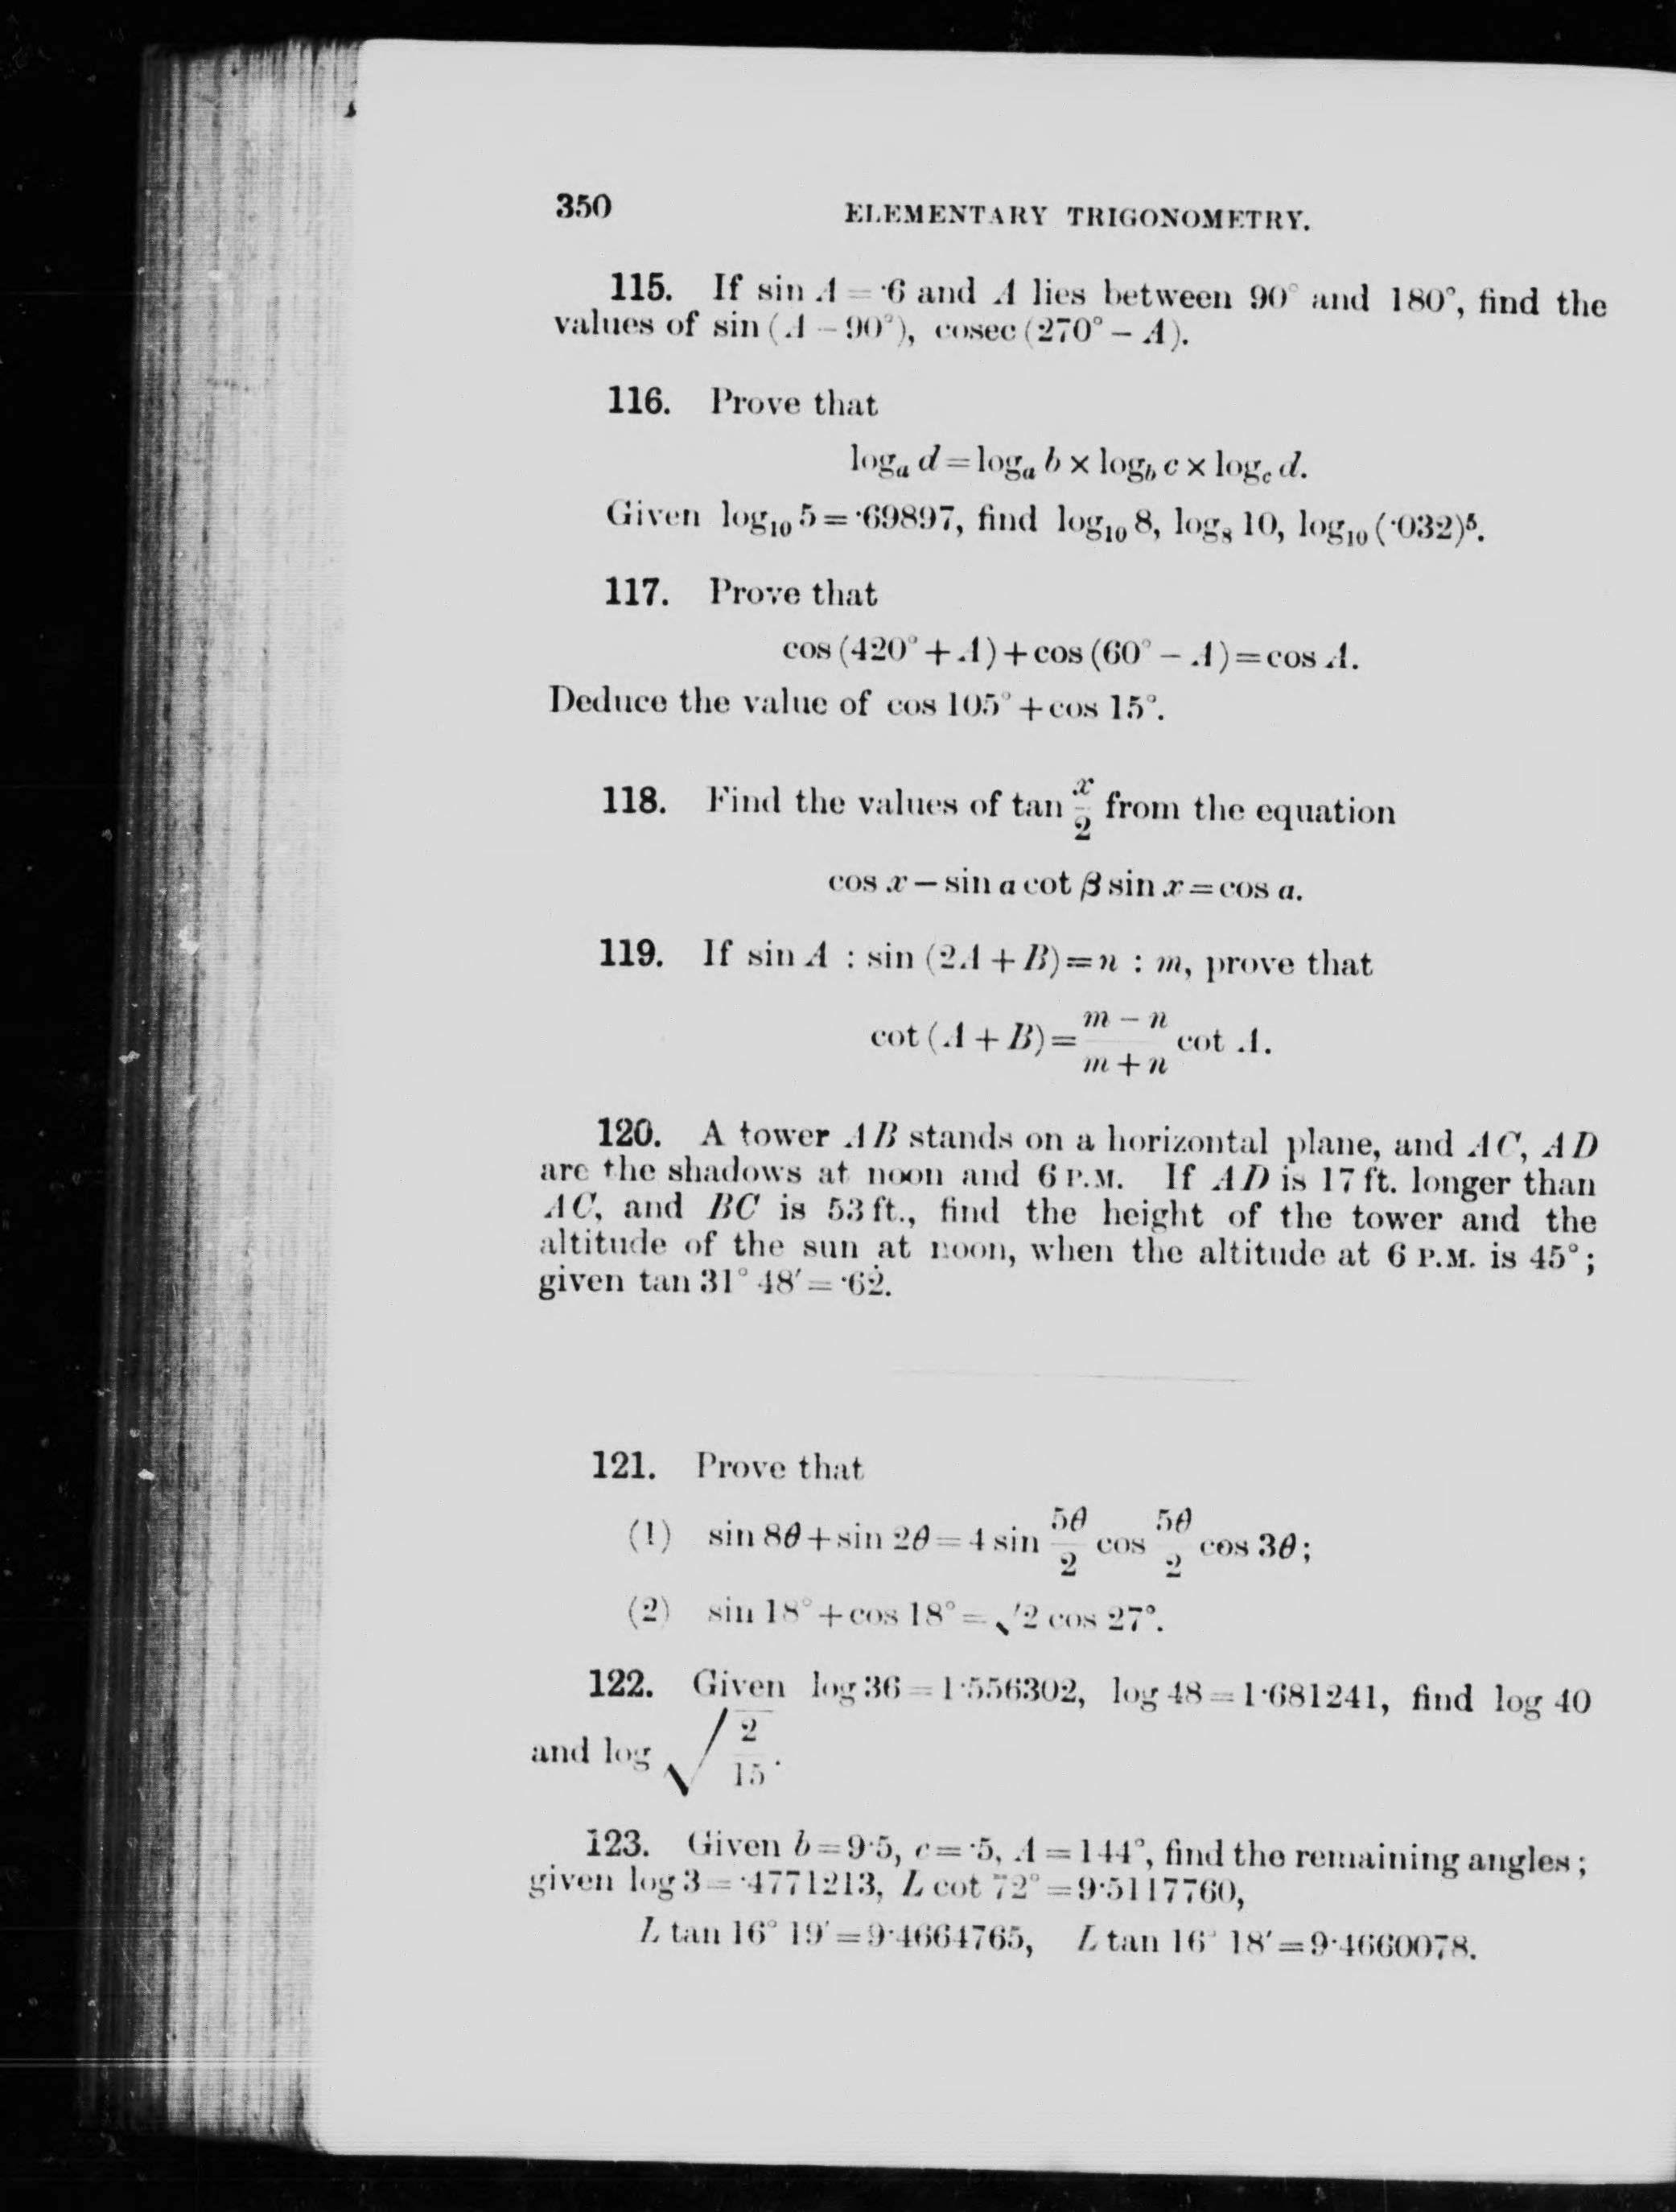 350 ELEMENTARY TRIGONOMETRY.
115. If sin A = ·6 and A lies between 90° and 180°, find the
values of sin (A – 90°), cosec (270° – A).
116. Prove that
logₐ d = logₐ b × log_b c × log_c d.
Given log₁₀ 5 = ·69897, find log₁₀ 8, log₈ 10, log₁₀ (·032)⁵.
117. Prove that
cos (420° + A) + cos (60° – A) = cos A.
Deduce the value of cos 105° + cos 15°.
118. Find the values of tan x/2 from the equation
cos x – sin α cot β sin x = cos α.
119. If sin A : sin (2A + B) = n : m, prove that
cot (A + B) = (m – n)/(m + n) cot A.
120. A tower AB stands on a horizontal plane, and AC, AD
are the shadows at noon and 6 P.M. If AD is 17 ft. longer than
AC, and BC is 53 ft., find the height of the tower and the
altitude of the sun at noon, when the altitude at 6 P.M. is 45°;
given tan 31° 48′ = ·62̇.
121. Prove that
(1) sin 8θ + sin 2θ = 4 sin 5θ/2 cos 5θ/2 cos 3θ;
(2) sin 18° + cos 18° = √2 cos 27°.
122. Given log 36 = 1·556302, log 48 = 1·681241, find log 40
and log √(2/15).
123. Given b = 9·5, c = ·5, A = 144°, find the remaining angles;
given log 3 = ·4771213, L cot 72° = 9·5117760,
L tan 16° 19′ = 9·4664765, L tan 16° 18′ = 9·4660078.